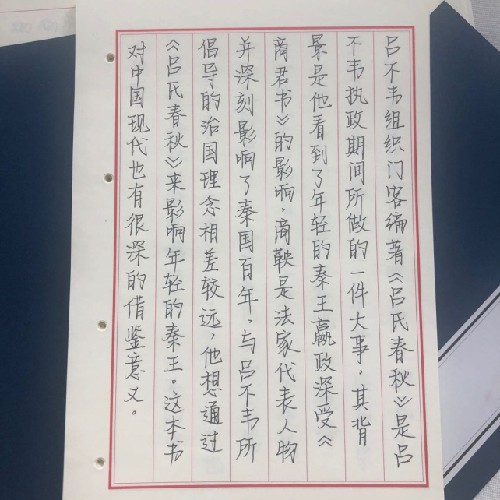 吕不韦组织门客编著《吕氏春秋》是吕
不韦执政期间所做的一件大事，其背
景是他看到了年轻的秦王嬴政深受《
商君书》的影响，商鞅是法家代表人物
并深刻影响了秦国百年，与吕不韦所
倡导的治国理念相差较远，他想通过
《吕氏春秋》来影响年轻的秦王。这本书
对中国现代也有很深的借鉴意义。